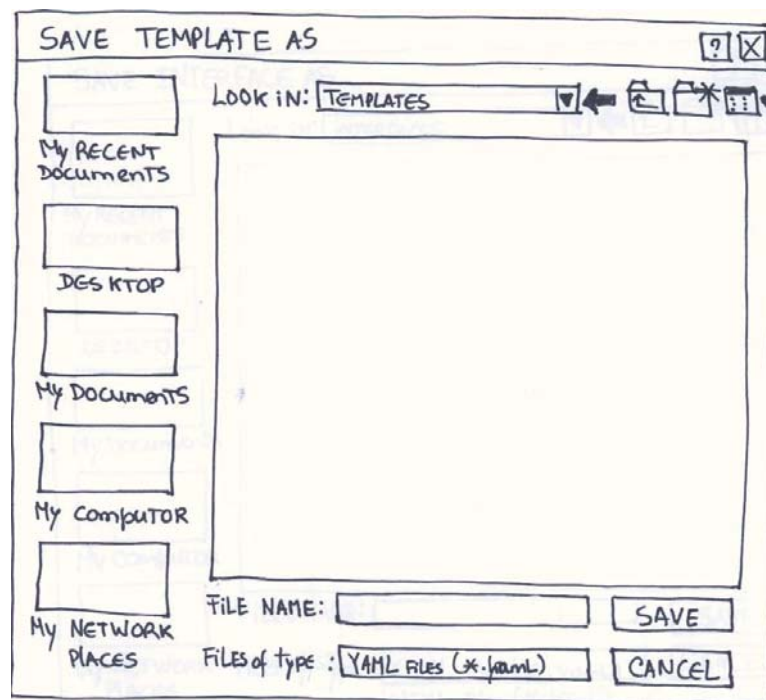 SAVE TEMPLATE AS
?
X
LOOK iN: TEMPLATES
My RECENT
DocumenTS
DESKTOP
My DocumenTS
My CompuTOR
My NETWORK
PlACES
FiLE NAME:
SAVE
FiLES of type : YAML FiLES (*.yaml)
CANCEL